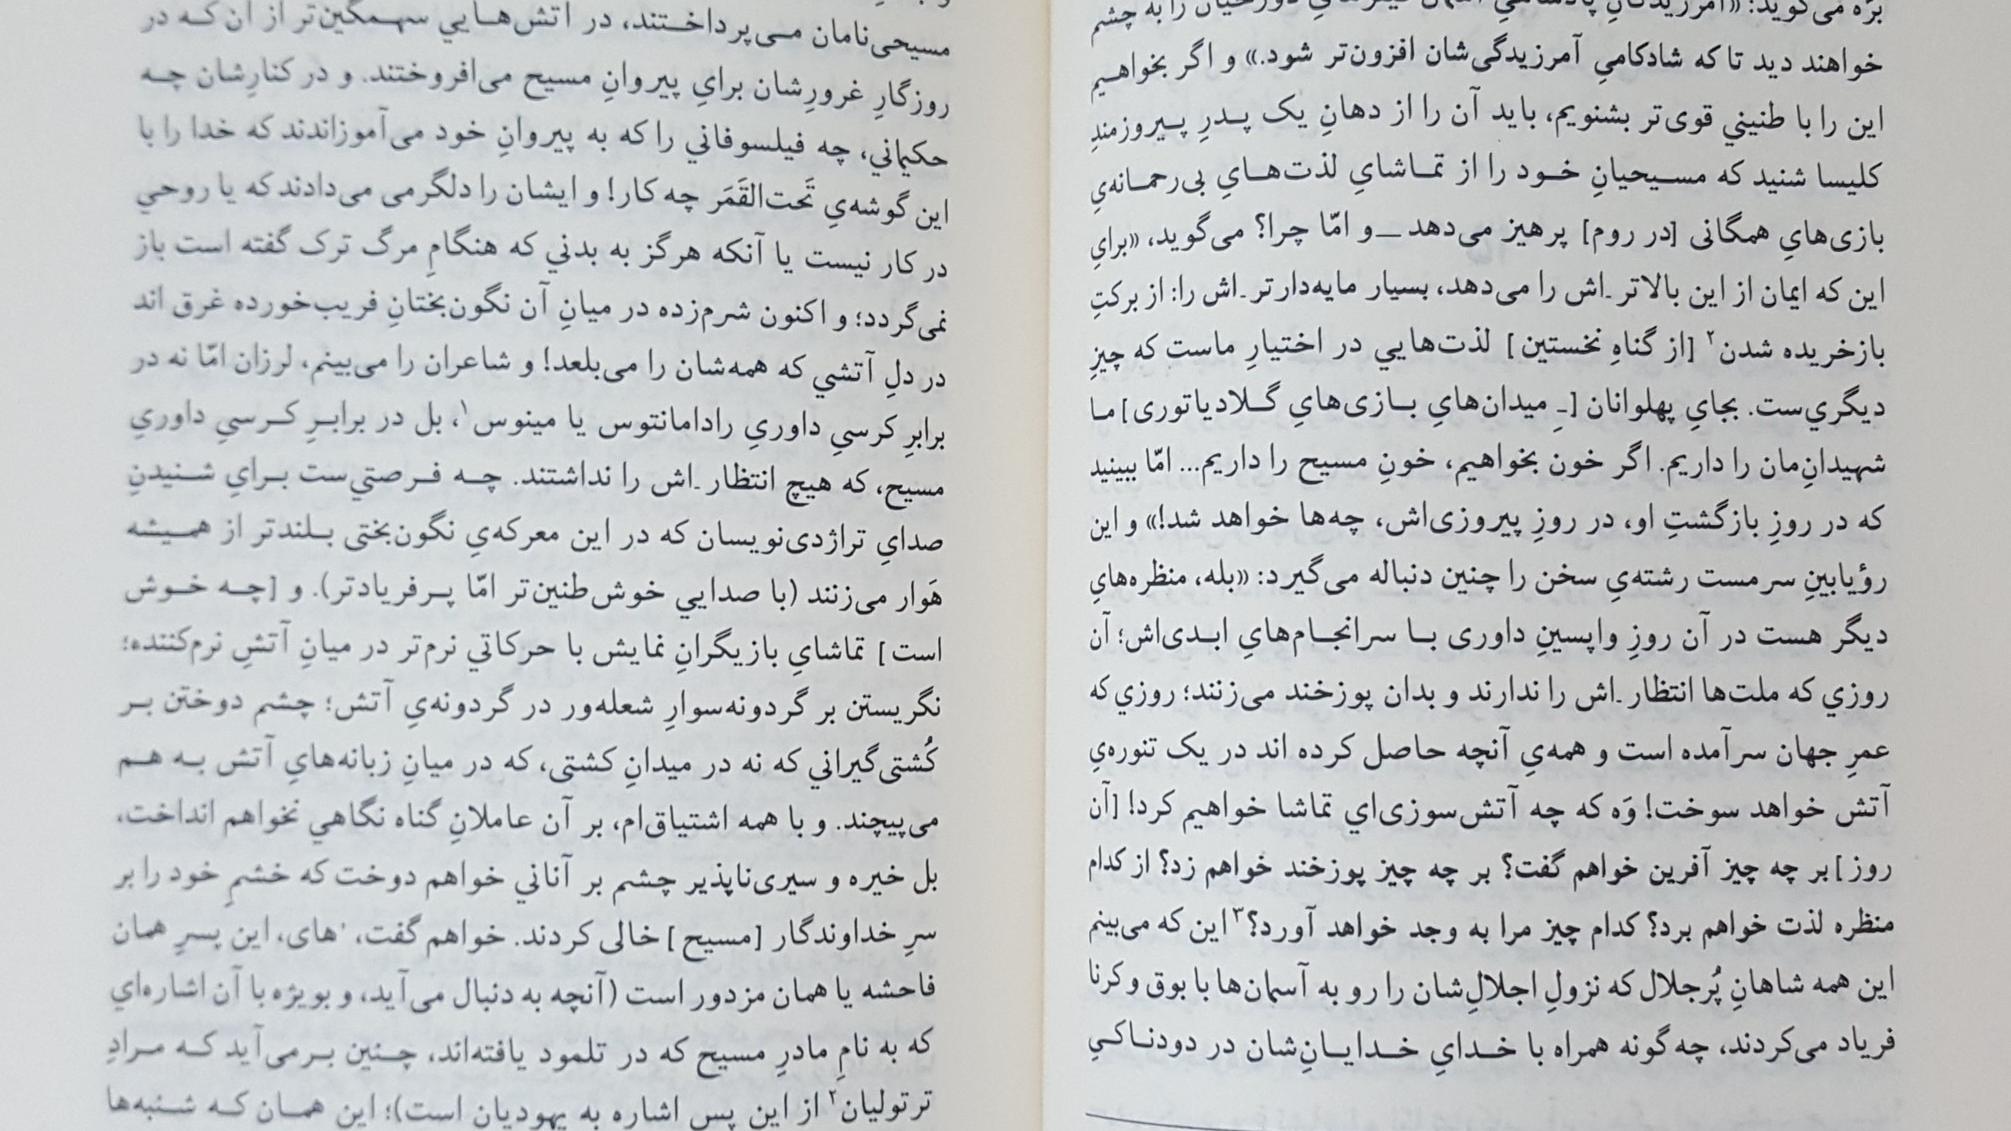 بَرّه می‌گوید: «آمرزیدگانِ پادشاهیِ آسمان کیفرهایِ دوزخیان را به چشم
خواهند دید تا که شادکامیِ آمرزیدگی‌شان افزون‌تر شود.» و اگر بخواهیم
این را با طنینی قوی‌تر بشنویم، باید آن را از دهانِ یک پدرِ پیروزمندِ
کلیسا شنید که مسیحیانِ خود را از تماشایِ لذت‌هایِ بی‌رحمانه‌یِ
بازی‌هایِ همگانی [در روم] پرهیز می‌دهد ــ و امّا چرا؟ می‌گوید، «برایِ
این که ایمان از این بالاتر ـ اش را می‌دهد، بسیار مایه‌دارتر ـ اش را: از برکتِ
بازخریده شدن۲ [از گناهِ نخستین] لذت‌هایي در اختیارِ ماست که چیزِ
دیگري‌ست. بجایِ پهلوانان [ـِ میدان‌هایِ بازی‌هایِ گلادیاتوری] ما
شهیدانِ‌مان را داریم. اگر خون بخواهیم، خونِ مسیح را داریم... امّا ببینید
که در روزِ بازگشتِ او، در روزِ پیروزی‌اش، چه‌ها خواهد شد!» و این
رؤیابینِ سرمست رشته‌یِ سخن را چنین دنباله می‌گیرد: «بله، منظره‌هایِ
دیگر هست در آن روزِ واپسینِ داوری با سرانجام‌هایِ ابدی‌اش؛ آن
روزي که ملت‌ها انتظار ـ اش را ندارند و بدان پوزخند می‌زنند؛ روزي که
عمرِ جهان سرآمده است و همه‌یِ آنچه حاصل کرده اند در یک تنوره‌یِ
آتش خواهد سوخت! وَه که چه آتش‌سوزی‌اي تماشا خواهیم کرد! [آن
روز] بر چه چیز آفرین خواهم گفت؟ بر چه چیز پوزخند خواهم زد؟ از کدام
منظره لذت خواهم برد؟ کدام چیز مرا به وجد خواهد آورد؟۳ این که می‌بینم
این همه شاهانِ پُرجلال که نزولِ اجلالِ‌شان را رو به آسمان‌ها با بوق و کرنا
فریاد می‌کردند، چه‌گونه همراه با خدایِ خدایانِ‌شان در دودناکیِ
مسیحی‌نامان می‌پرداختند، در آتش‌هایي سهمگین‌تر از آن که در
روزگارِ غرورِشان برایِ پیروانِ مسیح می‌افروختند. و در کنارِشان چه
حکیماني، چه فیلسوفاني را که به پیروانِ خود می‌آموزاندند که خدا را با
این گوشه‌یِ تَحت‌القَمَر چه کار! و ایشان را دلگرمی می‌دادند که یا روحي
در کار نیست یا آنکه هرگز به بدني که هنگامِ مرگ ترک گفته است باز
نمی‌گردد؛ و اکنون شرم‌زده در میانِ آن نگون‌بختانِ فریب‌خورده غرق اند
در دلِ آتشي که همه‌شان را می‌بلعد! و شاعران را می‌بینم، لرزان امّا نه در
برابرِ کرسیِ داوریِ رادامانتوس یا مینوس۱، بل در برابرِ کرسیِ داوریِ
مسیح، که هیچ انتظار ـ اش را نداشتند. چه فرصتي‌ست برایِ شنیدنِ
صدایِ تراژدی‌نویسان که در این معرکه‌یِ نگون‌بختی بلندتر از همیشه
هَوار می‌زنند (با صدایي خوش‌طنین‌تر امّا پرفریادتر). و [چه خوش
است] تماشایِ بازیگرانِ نمایش با حرکاتي نرم‌تر در میانِ آتشِ نرم‌کننده؛
نگریستن بر گردونه‌سوارِ شعله‌ور در گردونه‌یِ آتش؛ چشم دوختن بر
کُشتی‌گیراني که نه در میدانِ کشتی، که در میانِ زبانه‌هایِ آتش به هم
می‌پیچند. و با همه اشتیاق‌ام، بر آن عاملانِ گناه نگاهي نخواهم انداخت،
بل خیره و سیری‌ناپذیر چشم بر آناني خواهم دوخت که خشمِ خود را بر
سرِ خداوندگار [مسیح] خالی کردند. خواهم گفت، 'های، این پسرِ همان
فاحشه یا همان مزدور است (آنچه به دنبال می‌آید، و بویژه با آن اشاره‌اي
که به نامِ مادرِ مسیح که در تلمود یافته‌اند، چنین بر می‌آید که مرادِ
ترتولیان۲ از این پس اشاره به یهودیان است)؛ این همان که شنبه‌ها